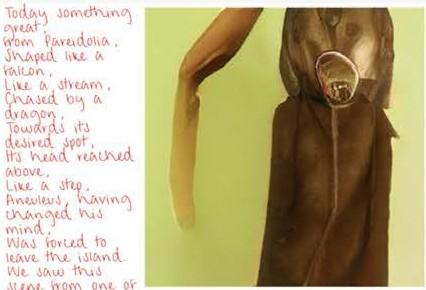 Today something
great,
From Pareidolia,
Shaped like a
Falcon,
Like a stream,
Chased by a
dragon,
Towards its
desired spot,
Its head reached
above,
Like a step,
Aneuleus, having
changed his
mind,
Was forced to
leave the island.
We saw this
scene from one of